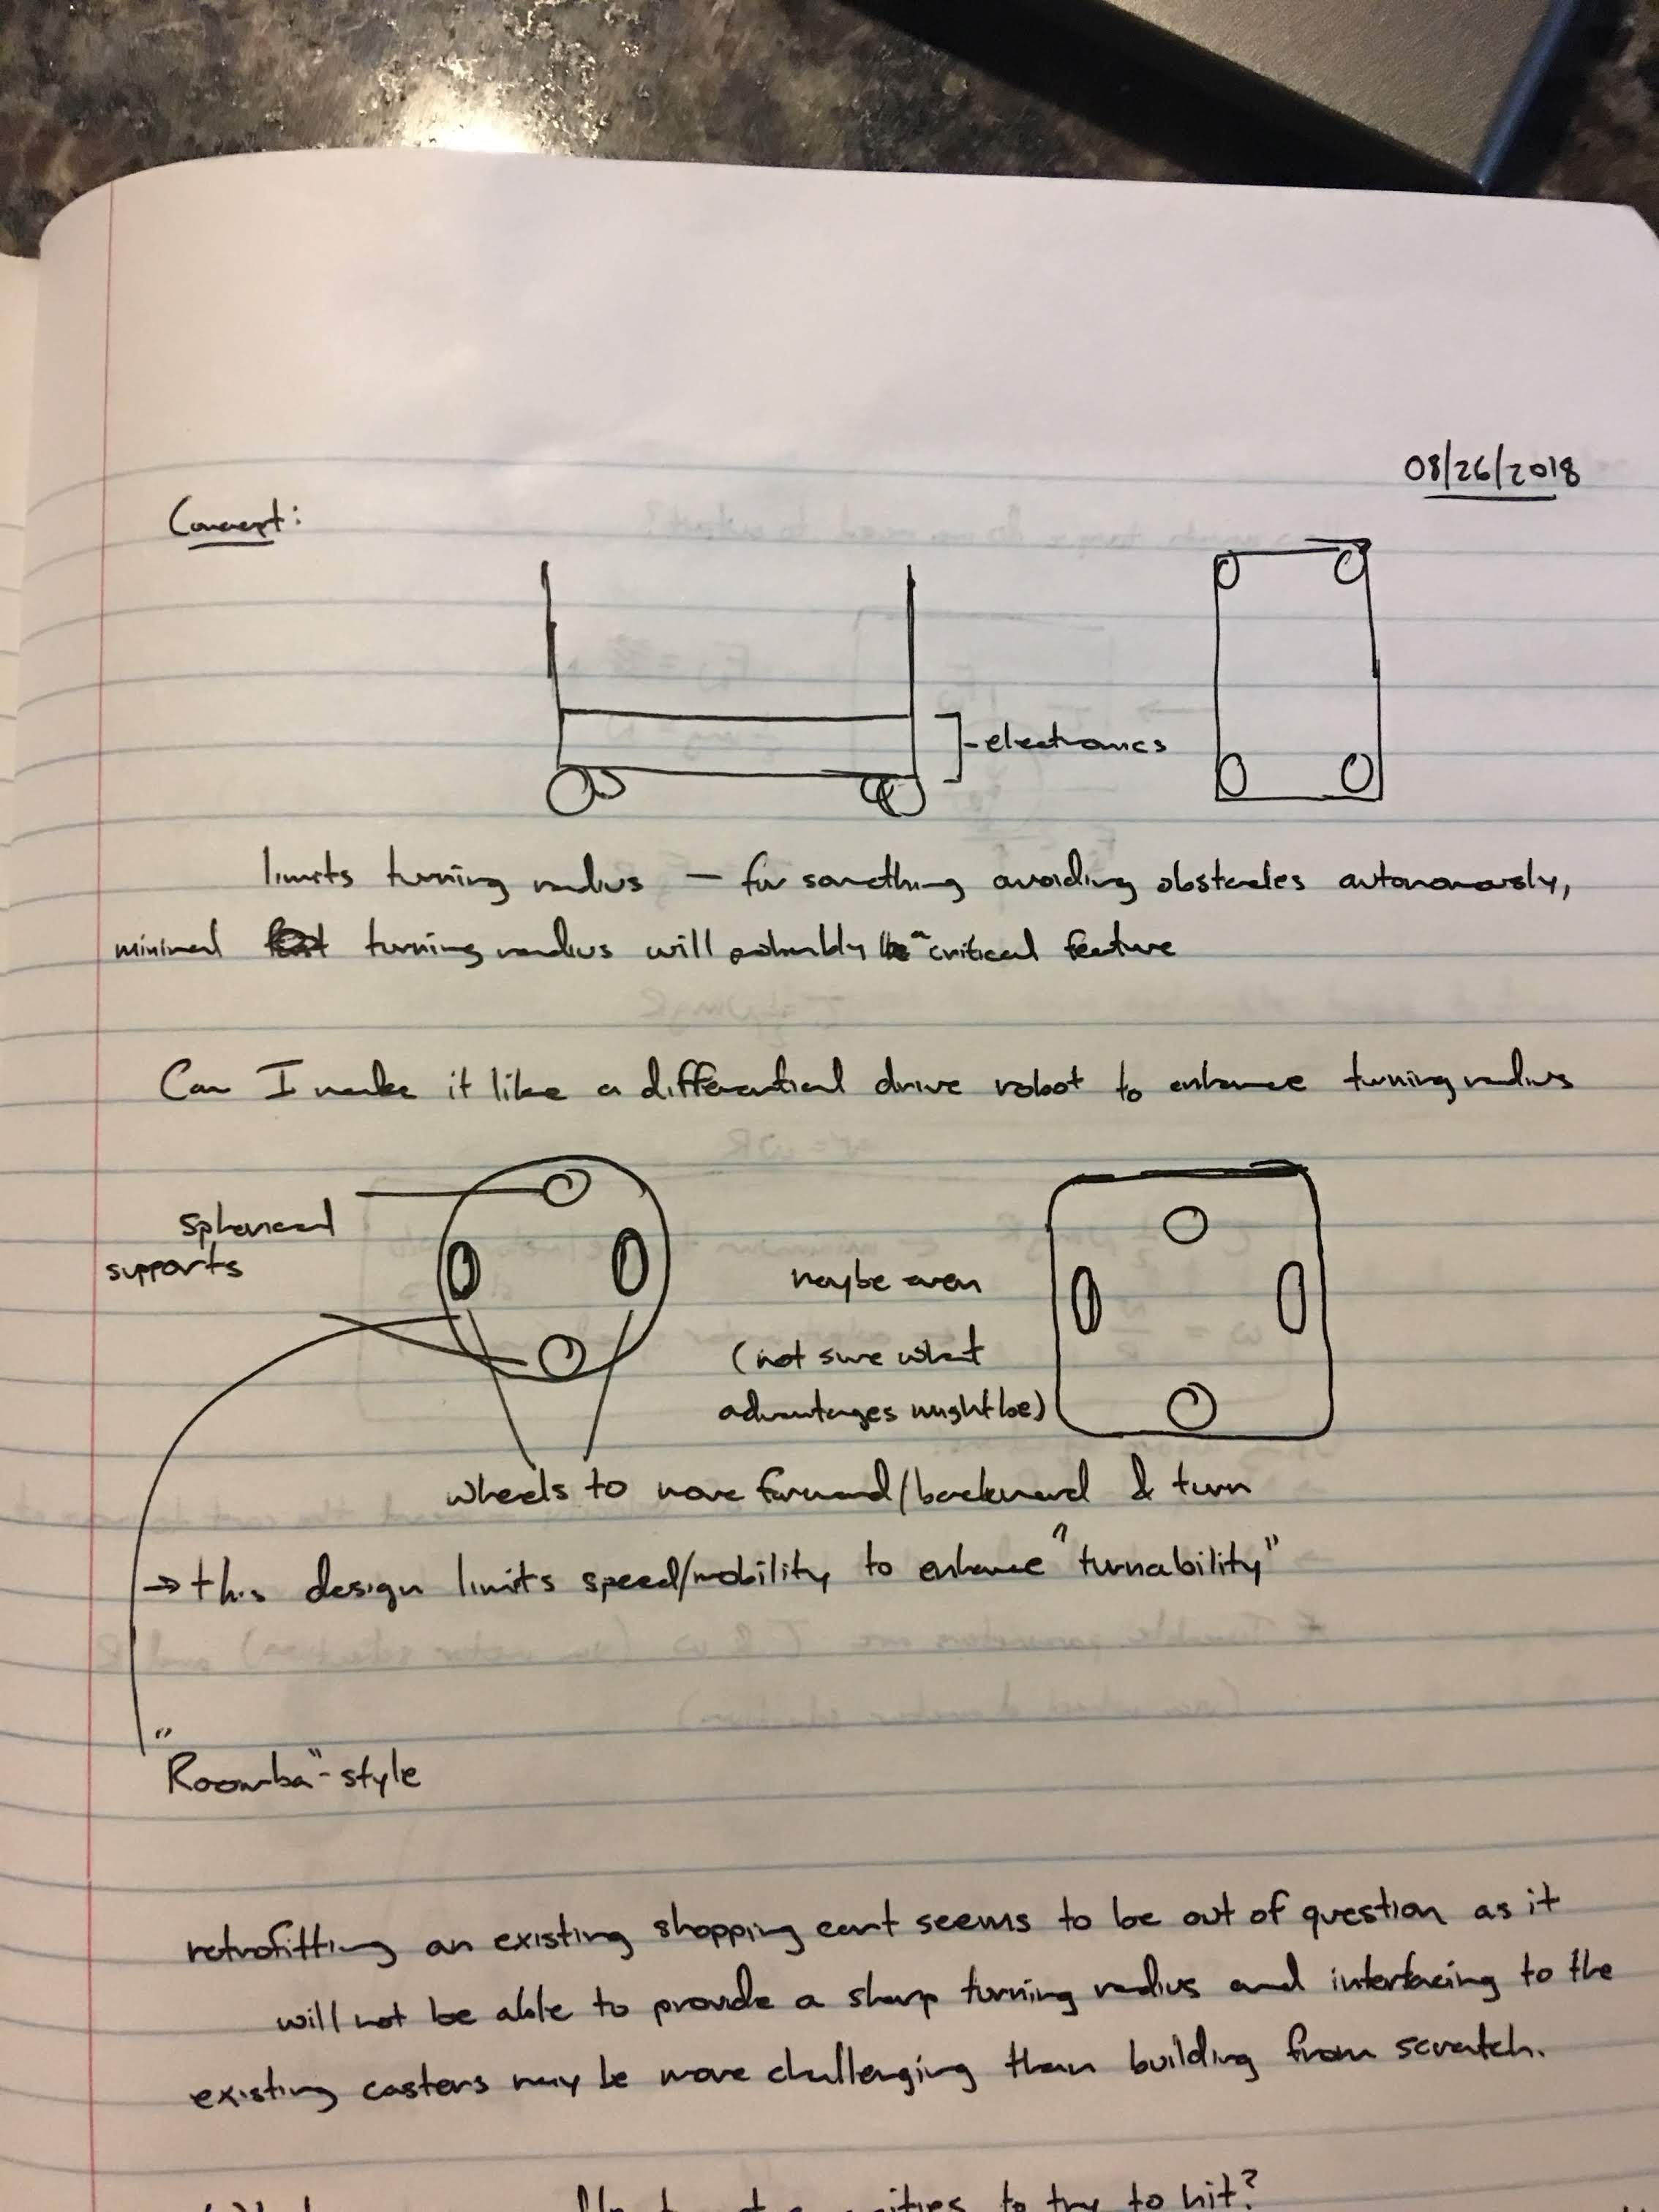 08/26/2018
Concept:
electronics
limits turning radius — for something avoiding obstacles autonomously,
minimal turning radius will probably be critical feature
Can I make it like a differential drive robot to enhance turning radius
spherical
supports
maybe even
(not sure what
advantages might be)
wheels to move forward/backward & turn
→ this design limits speed/mobility to enhance "turnability"
"Roomba"-style
retrofitting an existing shopping cart seems to be out of question as it
will not be able to provide a sharp turning radius and interfacing to the
existing casters may be more challenging than building from scratch.
to try to hit?